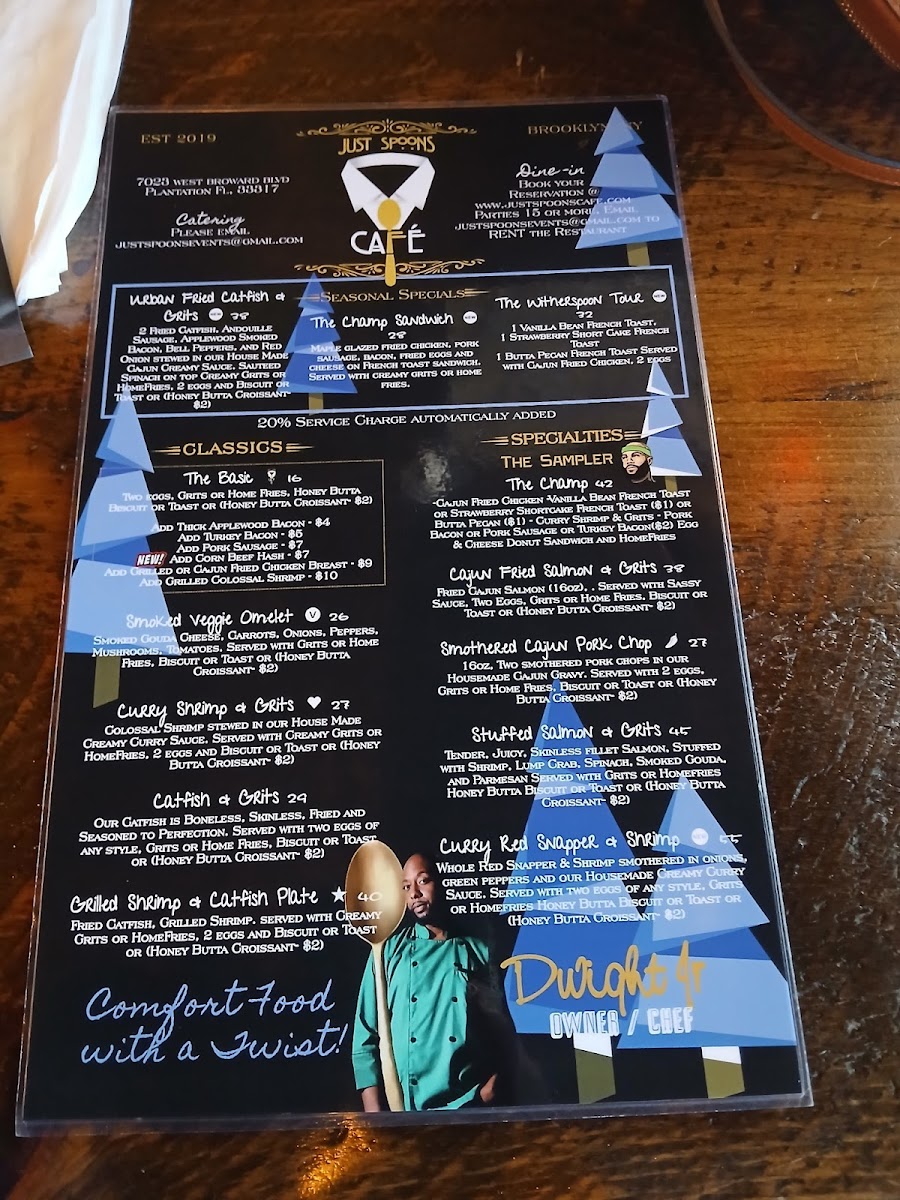 EST 2019
JUST SPOONS
CAFÉ
BROOKLYN
7023 WEST BROWARD BLVD
PLANTATION FL, 33317
Catering
PLEASE EMAIL
JUSTSPOONSEVENTS@GMAIL.COM
Dine-in
BOOK YOUR
RESERVATION @
WWW.JUSTSPOONSCAFE.COM
PARTIES 15 OR MORE, EMAIL
JUSTSPOONSEVENTS@GMAIL.COM TO
RENT THE RESTAURANT
SEASONAL SPECIALS
Urban Fried Catfish &
Grits NEW 38
2 FRIED CATFISH, ANDOUILLE
SAUSAGE, APPLEWOOD SMOKED
BACON, BELL PEPPERS, AND RED
ONION STEWED IN OUR HOUSE MADE
CAJUN CREAMY SAUCE. SAUTEED
SPINACH ON TOP CREAMY GRITS OR
HOMEFRIES, 2 EGGS AND BISCUIT OR
TOAST OR (HONEY BUTTA CROISSANT-
$2)
The Champ Sandwich NEW
28
MAPLE GLAZED FRIED CHICKEN, PORK
SAUSAGE, BACON, FRIED EGGS AND
CHEESE ON FRENCH TOAST SANDWICH.
SERVED WITH CREAMY GRITS OR HOME
FRIES.
The Witherspoon Tour NEW
32
1 VANILLA BEAN FRENCH TOAST,
1 STRAWBERRY SHORT CAKE FRENCH
TOAST
1 BUTTA PECAN FRENCH TOAST SERVED
WITH CAJUN FRIED CHICKEN, 2 EGGS
20% SERVICE CHARGE AUTOMATICALLY ADDED
CLASSICS
The Basic 16
TWO EGGS, GRITS OR HOME FRIES, HONEY BUTTA
BISCUIT OR TOAST OR (HONEY BUTTA CROISSANT- $2)
ADD THICK APPLEWOOD BACON - $4
ADD TURKEY BACON - $5
ADD PORK SAUSAGE - $7
NEW! ADD CORN BEEF HASH - $7
ADD GRILLED OR CAJUN FRIED CHICKEN BREAST - $9
ADD GRILLED COLOSSAL SHRIMP - $10
Smoked Veggie Omelet V 26
SMOKED GOUDA CHEESE, CARROTS, ONIONS, PEPPERS,
MUSHROOMS, TOMATOES. SERVED WITH GRITS OR HOME
FRIES, BISCUIT OR TOAST OR (HONEY BUTTA
CROISSANT- $2)
Curry Shrimp & Grits ♥ 27
COLOSSAL SHRIMP STEWED IN OUR HOUSE MADE
CREAMY CURRY SAUCE. SERVED WITH CREAMY GRITS OR
HOMEFRIES, 2 EGGS AND BISCUIT OR TOAST OR (HONEY
BUTTA CROISSANT- $2)
Catfish & Grits 29
OUR CATFISH IS BONELESS, SKINLESS, FRIED AND
SEASONED TO PERFECTION. SERVED WITH TWO EGGS OF
ANY STYLE, GRITS OR HOME FRIES, BISCUIT OR TOAST
OR (HONEY BUTTA CROISSANT- $2)
Grilled Shrimp & Catfish Plate ★ 40
FRIED CATFISH, GRILLED SHRIMP. SERVED WITH CREAMY
GRITS OR HOMEFRIES, 2 EGGS AND BISCUIT OR TOAST
OR (HONEY BUTTA CROISSANT- $2)
Comfort Food
with a Twist!
SPECIALTIES
THE SAMPLER
The Champ 42
-CAJUN FRIED CHICKEN -VANILLA BEAN FRENCH TOAST
OR STRAWBERRY SHORTCAKE FRENCH TOAST ($1) OR
BUTTA PECAN ($1) - CURRY SHRIMP & GRITS - PORK
BACON OR PORK SAUSAGE OR TURKEY BACON($2) EGG
& CHEESE DONUT SANDWICH AND HOMEFRIES
Cajun Fried Salmon & Grits 38
FRIED CAJUN SALMON (16OZ), . SERVED WITH SASSY
SAUCE, TWO EGGS, GRITS OR HOME FRIES, BISCUIT OR
TOAST OR (HONEY BUTTA CROISSANT- $2)
Smothered Cajun Pork Chop 27
16OZ, TWO SMOTHERED PORK CHOPS IN OUR
HOUSEMADE CAJUN GRAVY. SERVED WITH 2 EGGS,
GRITS OR HOME FRIES, BISCUIT OR TOAST OR (HONEY
BUTTA CROISSANT- $2)
Stuffed Salmon & Grits 45
TENDER, JUICY, SKINLESS FILLET SALMON, STUFFED
WITH SHRIMP, LUMP CRAB, SPINACH, SMOKED GOUDA,
AND PARMESAN SERVED WITH GRITS OR HOMEFRIES
HONEY BUTTA BISCUIT OR TOAST OR (HONEY BUTTA
CROISSANT- $2)
Curry Red Snapper & Shrimp NEW 55
WHOLE RED SNAPPER & SHRIMP SMOTHERED IN ONIONS,
GREEN PEPPERS AND OUR HOUSEMADE CREAMY CURRY
SAUCE. SERVED WITH TWO EGGS OF ANY STYLE, GRITS
OR HOMEFRIES HONEY BUTTA BISCUIT OR TOAST OR
(HONEY BUTTA CROISSANT- $2)
Dwight Jr
OWNER / CHEF